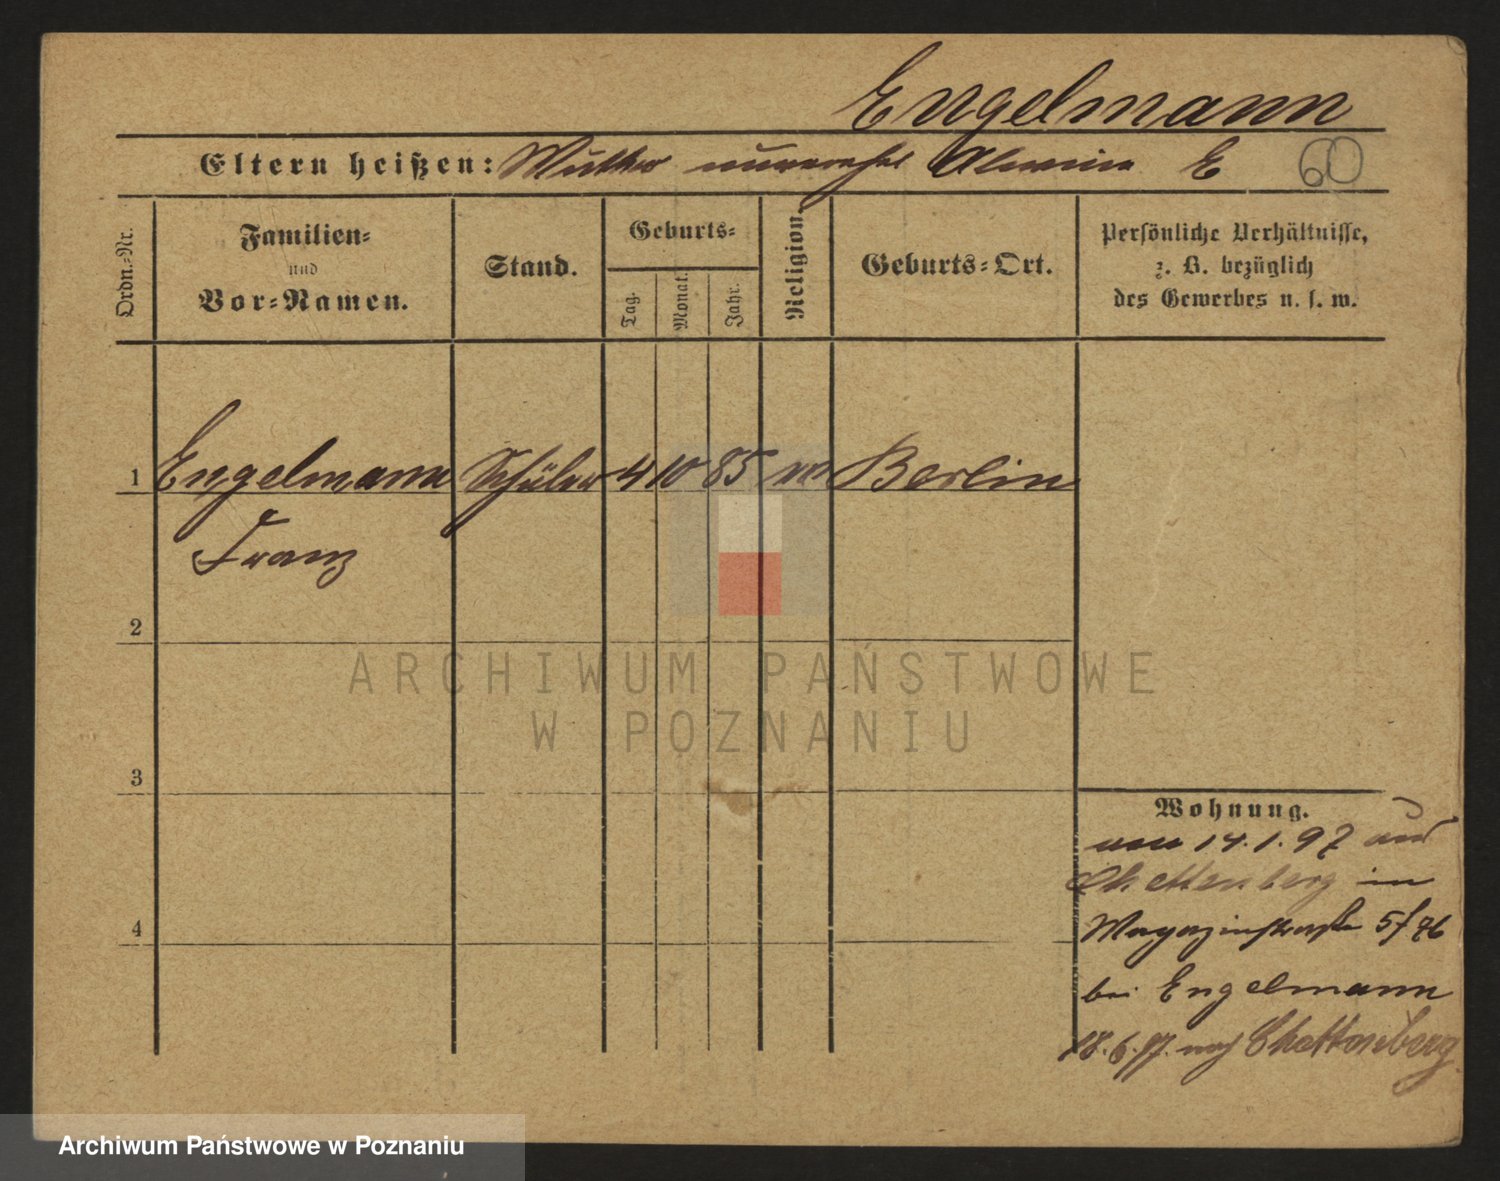 Engelmann
Eltern heißen: Mutter unverehel Alwine E 60
Ordn.-Nr.
Familien-
und
Vor-Namen.
Stand.
Geburts-
Tag.
Monat.
Jahr.
Religion.
Geburts-Ort.
Persönliche Verhältnisse,
z. B. bezüglich
des Gewerbes u. s. w.
1 Engelmann Schüler 4 10 85 Berlin
Franz
2
3
4
ARCHIWUM PAŃSTWOWE
W POZNANIU
Wohnung.
von 14.1.97 aus
in
Magazinstraße 5
bei Engelmann
18.6.97. nach
Archiwum Państwowe w Poznaniu